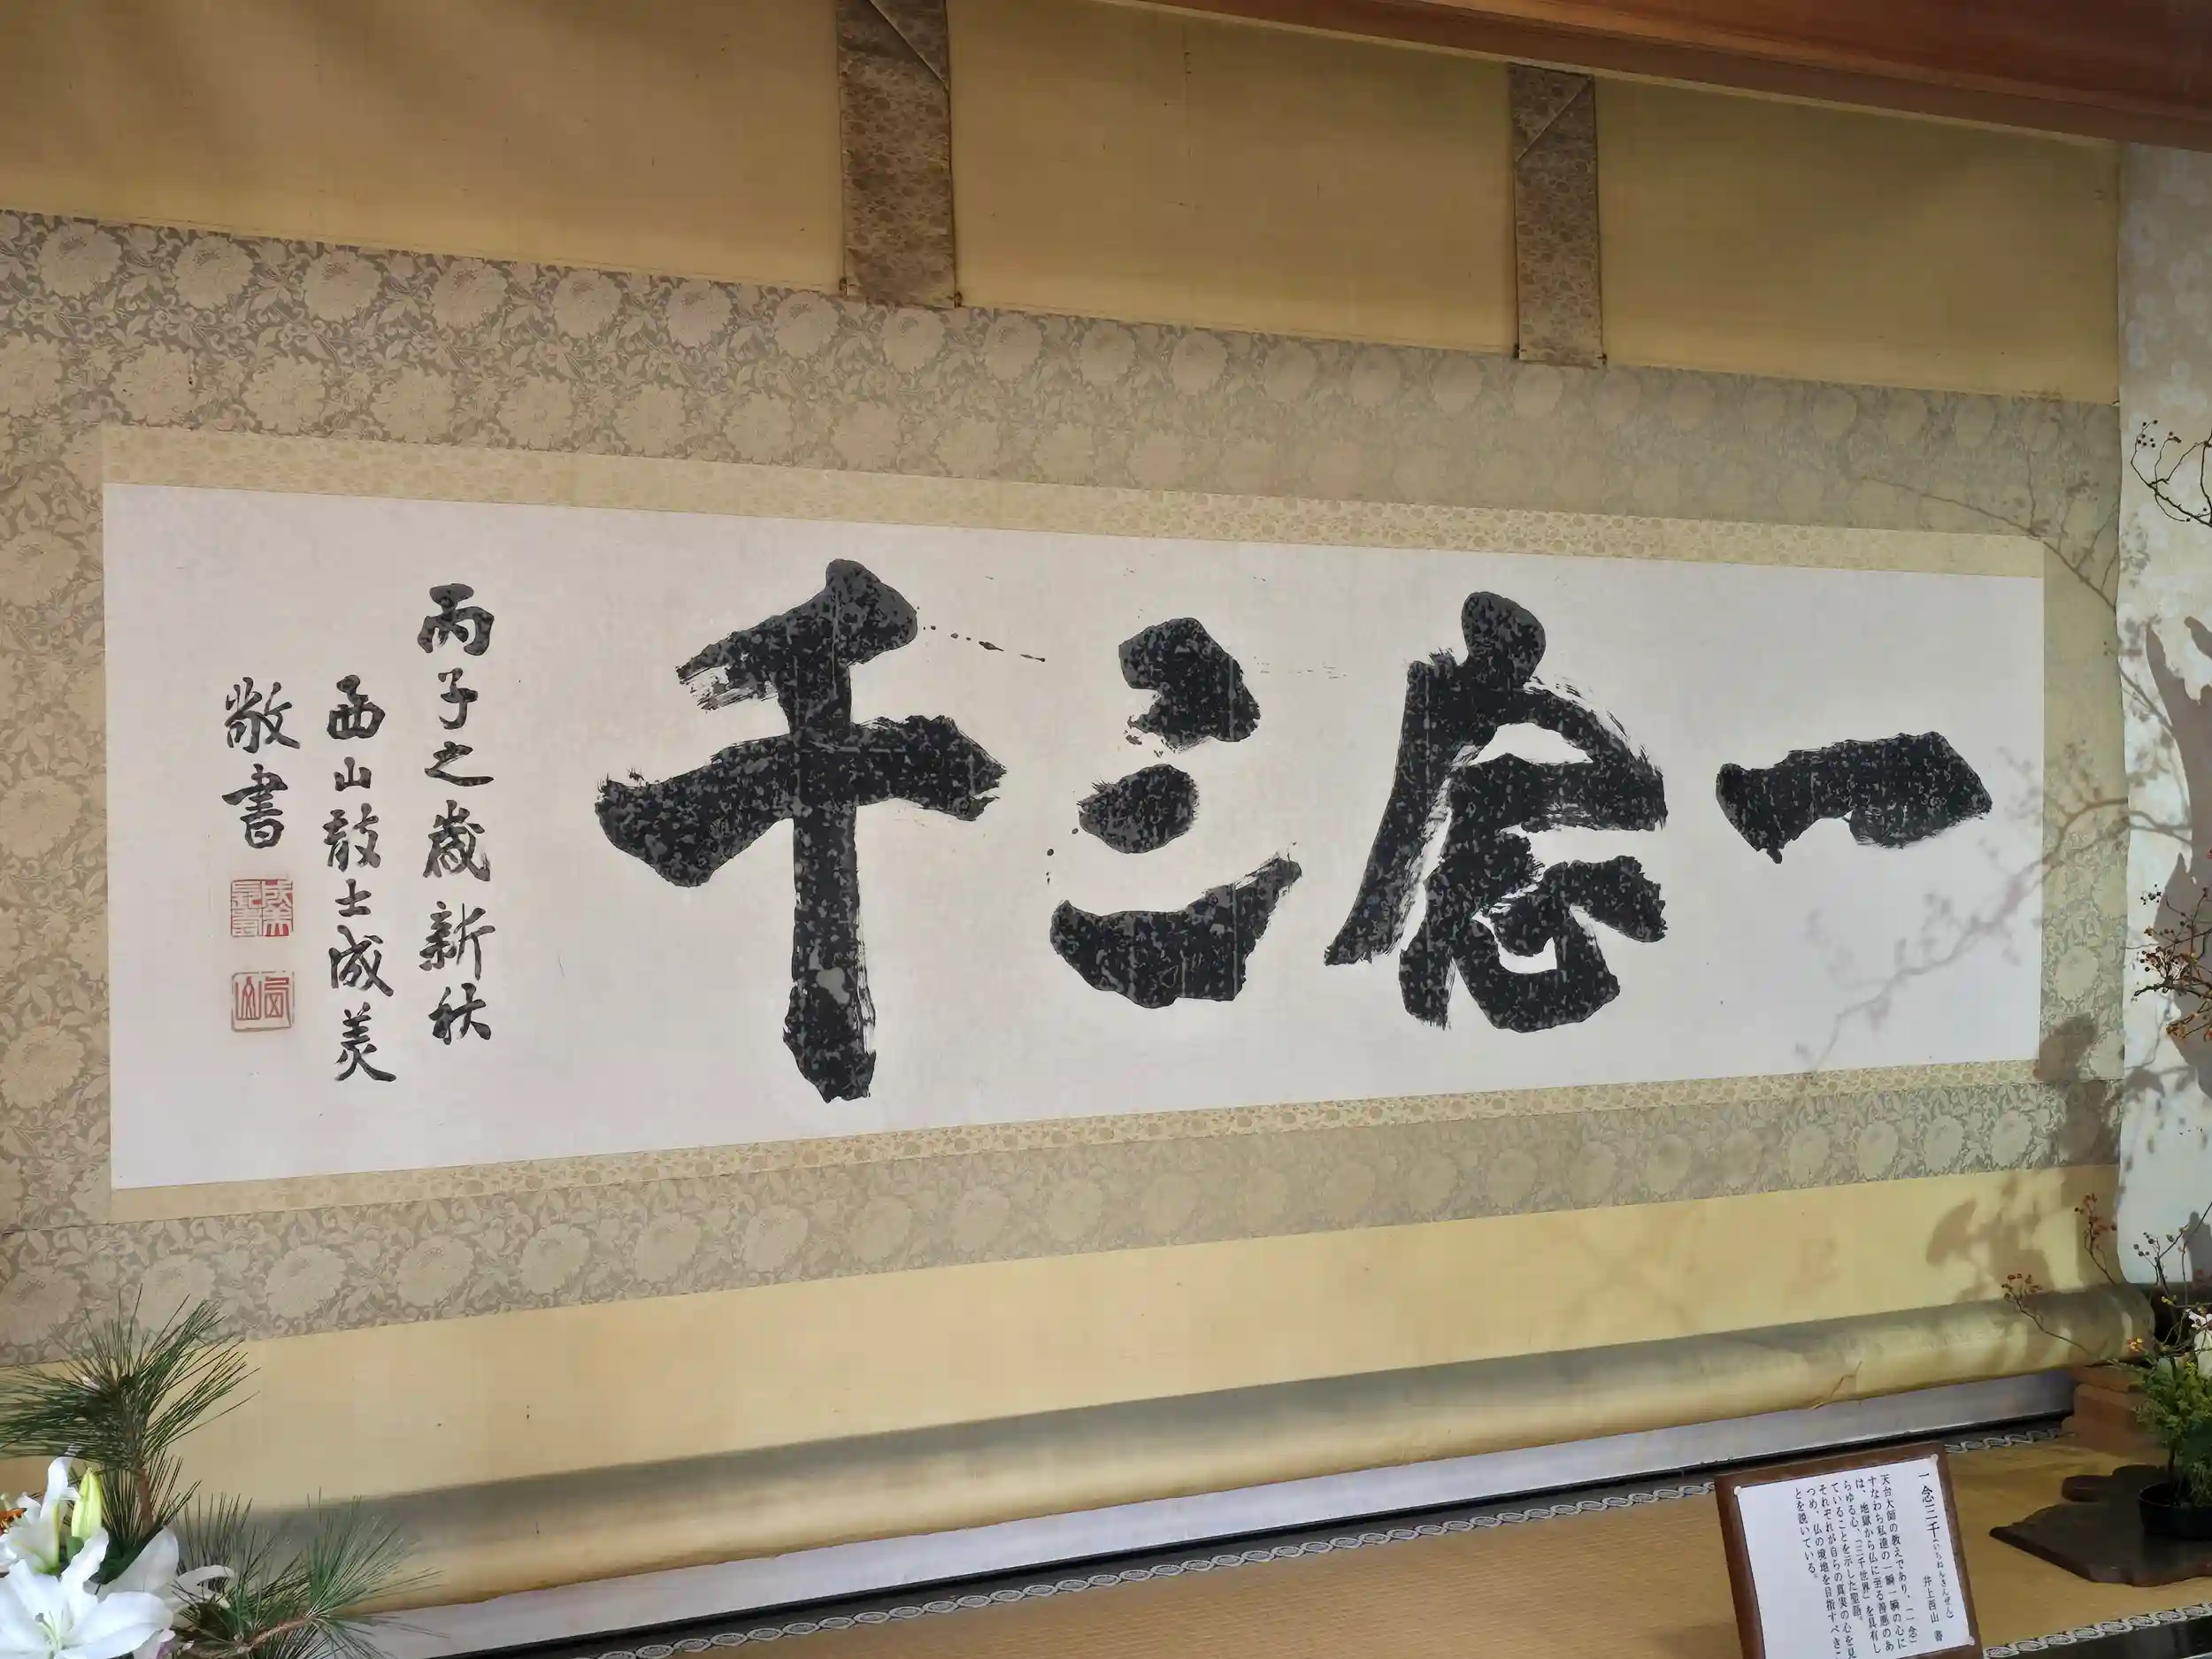 一念三千
丙子之歳新秋
西山散士成美
敬書
一念三千(いちねんさんぜん)
井上西山 書
天台大師の教えであり、「一念」
すなわち私達の一瞬一瞬の心に
は、地獄から仏に至る善悪のあ
らゆる心、「三千世界」を具有し
ていることを示した聖語。
それぞれが自らの真実の心を見
つめ、仏の境地を目指すべきこ
とを説いている。